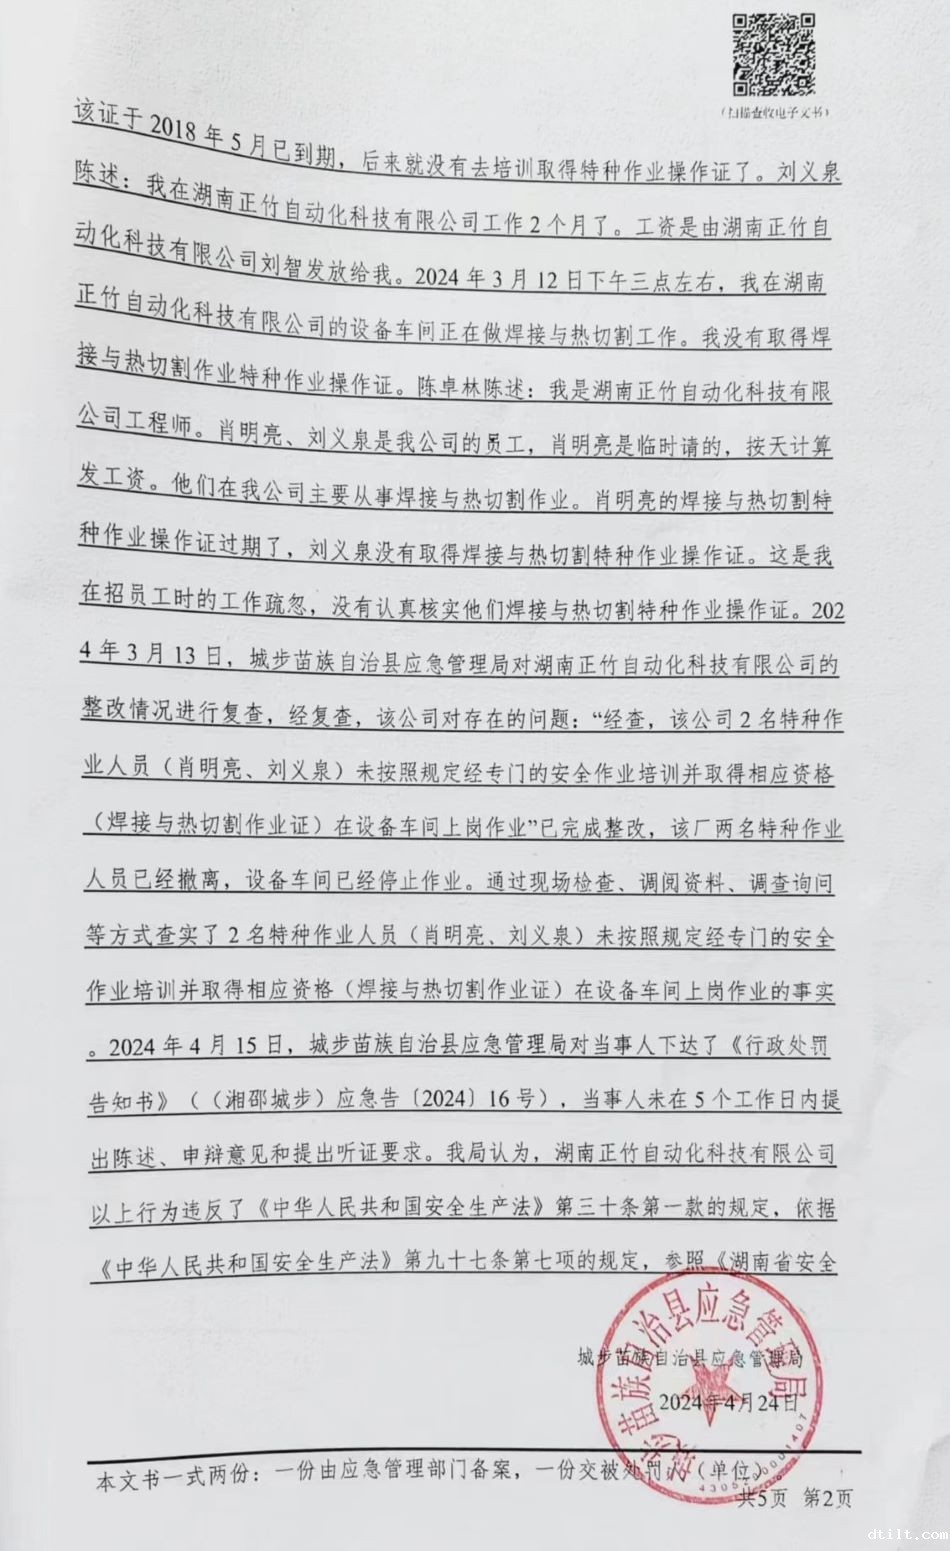 （扫描查收电子文书）
该证于2018年5月已到期，后来就没有去培训取得特种作业操作证了。刘义泉
陈述：我在湖南正竹自动化科技有限公司工作2个月了。工资是由湖南正竹自
动化科技有限公司刘智发放给我。2024年3月12日下午三点左右，我在湖南
正竹自动化科技有限公司的设备车间正在做焊接与热切割工作。我没有取得焊
接与热切割作业特种作业操作证。陈卓林陈述：我是湖南正竹自动化科技有限
公司工程师。肖明亮、刘义泉是我公司的员工，肖明亮是临时请的，按天计算
发工资。他们在我公司主要从事焊接与热切割作业。肖明亮的焊接与热切割特
种作业操作证过期了，刘义泉没有取得焊接与热切割特种作业操作证。这是我
在招员工时的工作疏忽，没有认真核实他们焊接与热切割特种作业操作证。202
4年3月13日，城步苗族自治县应急管理局对湖南正竹自动化科技有限公司的
整改情况进行复查，经复查，该公司对存在的问题：“经查，该公司2名特种作
业人员（肖明亮、刘义泉）未按照规定经专门的安全作业培训并取得相应资格
（焊接与热切割作业证）在设备车间上岗作业”已完成整改，该厂两名特种作业
人员已经撤离，设备车间已经停止作业。通过现场检查、调阅资料、调查询问
等方式查实了2名特种作业人员（肖明亮、刘义泉）未按照规定经专门的安全
作业培训并取得相应资格（焊接与热切割作业证）在设备车间上岗作业的事实
。2024年4月15日，城步苗族自治县应急管理局对当事人下达了《行政处罚
告知书》（（湘邵城步）应急告〔2024〕16号），当事人未在5个工作日内提
出陈述、申辩意见和提出听证要求。我局认为，湖南正竹自动化科技有限公司
以上行为违反了《中华人民共和国安全生产法》第三十条第一款的规定，依据
《中华人民共和国安全生产法》第九十七条第七项的规定，参照《湖南省安全
城步苗族自治县应急管理局
2024年4月24日
城步苗族自治县应急管理局
4305200001407
本文书一式两份：一份由应急管理部门备案，一份交被处罚人（单位）。
共5页 第2页
dtilt.com